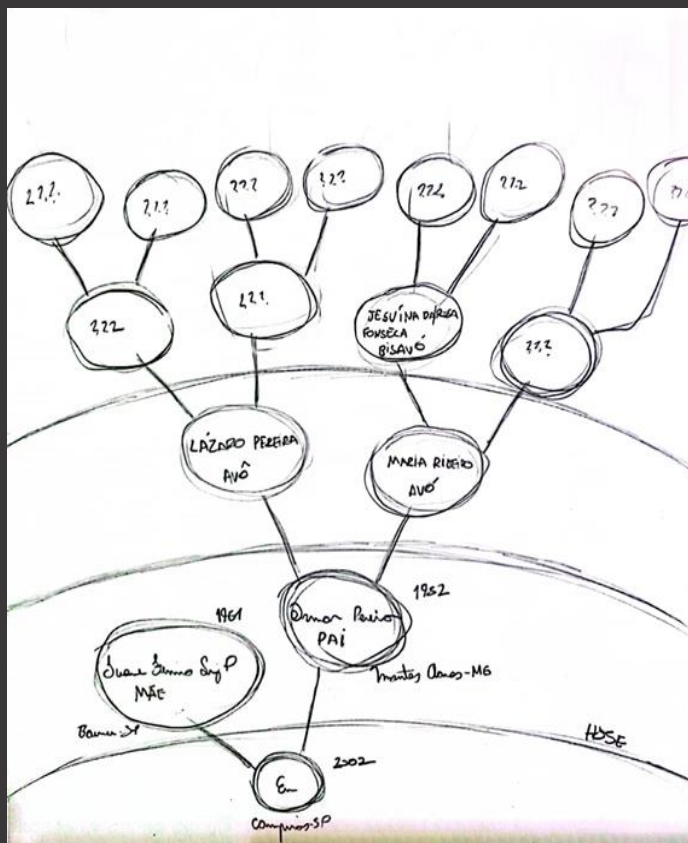 ???
???
???
???
???
???
???
???
???
???
JESUÍNA DA ROSA
FONSECA
BISAVÓ
???
LÁZARO PEREIRA
AVÔ
MARIA RIBEIRO
AVÓ
1952
Pereira
PAI
Montes Claros-MG
1961
MÃE
Bauru-SP
HOJE
2002
Eu
Campinas-SP